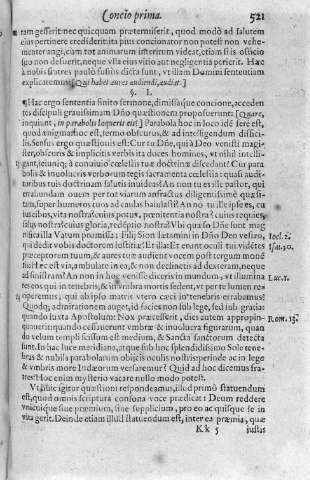 Concio prima. 521
ram gesserit: nec quicquam prætermiserit, quod modò ad salutem
eius pertinere crediderit: ita pius concionator non potest non vehe-
menter angi, cùm tot animarum interitum videat, etiam si is officio
suo non desuerit, neque vlla eius vitio aut negligentia pericrit. Hæc
à nobis fratres paulò fusiùs dicta sunt, vt illam Domini sententiam
explicaremus, Qui habet aures audiendi, audiat.]
§. I.
Hac ergo sententia finito sermone, dimissaque concione, acceden
tes discipuli grauissimam Dño quæstionem proposuerunt: Quare,
inquiunt, in parabolis loqueris eis? Parabola hoc in loco idē ferè est,
quod ænigma: hoc est, sermo obscurus, & ad intelligendum difficí-
lis. Sensus ergo quæstionis est: Cur tu Dñe, qui à Deo venisti magi-
ster, obscuris & implicitis verbis ita doces homines, vt nihil intelli-
gant, ieiuniq; à conuiuio cœlestis tuæ doctrinæ discedant? Cur para
bolis & inuolucris verborum tegis sacramenta cœlestia: quasi audi-
toribus tuis doctrinam salutis inuideas? An non tu es ille pastor, qui
errabundam ouem per tot viarum anfractus diligentissimè quæsi-
tam, super humeros tuos ad caulas baiulasti? An nō tu ille ipse es, cu
ius cibus, vita nostra: cuius potus, pœnitentia nostra: cuius requies,
salus nostra: cuius gloria, redēptio nostra? Vbi quæso Dñe sunt mag
nifica illa Vatum promissa: Filij Sion lætamini in Dño Deo vestro,
qá dedit vobis doctorem iustitiæ: Et illa: Et erunt oculi tui vidētes
præceptorem tuum, & aures tuæ audient vocem post tergum monē
tis: Hæc est via, ambulate in ea, & non declinetis ad dexteram, neque
ad sinistram? An non in hoc venisse diceris in mundum, vt illumina
res eos qui in tenebris, & in vmbra mortis sedent, vt per te lumen re
operemus, qui ab ipso matris vtero cæci in tenebris errabamus?
Quodq; admirationem auget, id facies non sub lege, sed sub gratia:
quando iuxta Apostolum: Nox præcessit, dies autem appropin-
quauerit: quando cessauerunt vmbræ & inuolucra figurarum, quan
do velum templi scissum est medium, & Sancta sanctorum detecta
sunt. In hac luce meridiana, atque sub hoc splendidissimo Sole tene-
bras & nubila parabolarum obijcis oculis nostris: perinde ac in lege
& vmbris more Iudæorum versaremur? Quid ad hoc dicemus fra-
tres? Hoc enim mysterio vacare nullo modo potest.
Vt huic igitur quæstioni respondeamus, illud primò statuendum
est, quod omnis scriptura consona voce prædicat: Deum reddere
vnicuique siue præmium, siue supplicium, pro eo ac quisque se in
vita gerit. Deinde etiam illud statuendum est, inter ea præmia, quæ
Kk 5 iustis
Ioel. 2.
Isai. 30.
Luc. 1.
Rom. 13.